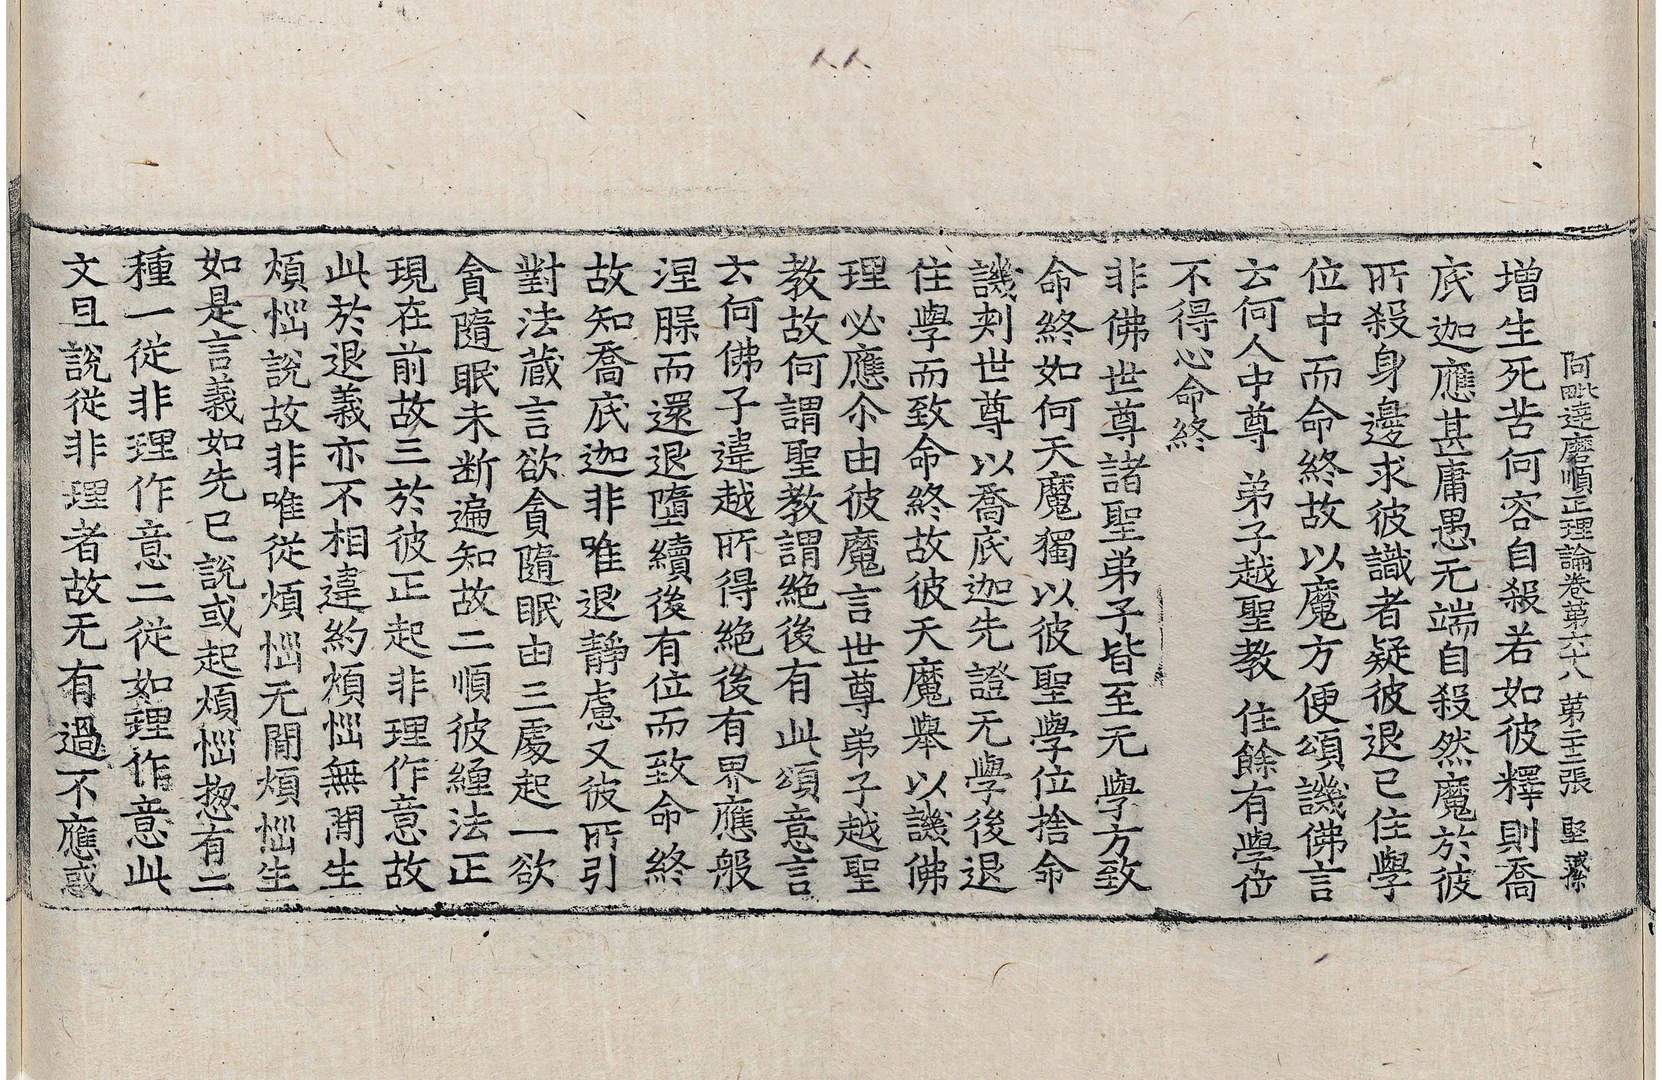 阿毗達磨順正理論卷第六十八 第二十三張 堅
增生死苦何容自殺若如彼釋則喬
底迦應甚庸愚无端自殺然魔於彼
所殺身邊求彼識者疑彼退已住學
位中而命終故以魔方便頌譏佛言
云何人中尊 弟子越聖教 住餘有學位
不得心命終
非佛世尊諸聖弟子皆至无學方致
命終如何天魔獨以彼聖學位捨命
譏刾世尊以喬底迦先證无學後退
住學而致命終故彼天魔舉以譏佛
理必應尒由彼魔言世尊弟子越聖
教故何謂聖教謂絶後有此頌意言
云何佛子違越所得絶後有界應般
涅脲而還退墮續後有位而致命終
故知喬底迦非唯退靜慮又彼所引
對法藏言欲貪隨眠由三處起一欲
貪隨眠未断遍知故二順彼纏法正
現在前故三於彼正起非理作意故
此於退義亦不相違約煩惱無閒生
煩惱說故非唯從煩惱无閒煩惱生
如是言義如先已說或起煩惱惣有二
種一從非理作意二從如理作意此
文且說從非理者故无有過不應惑